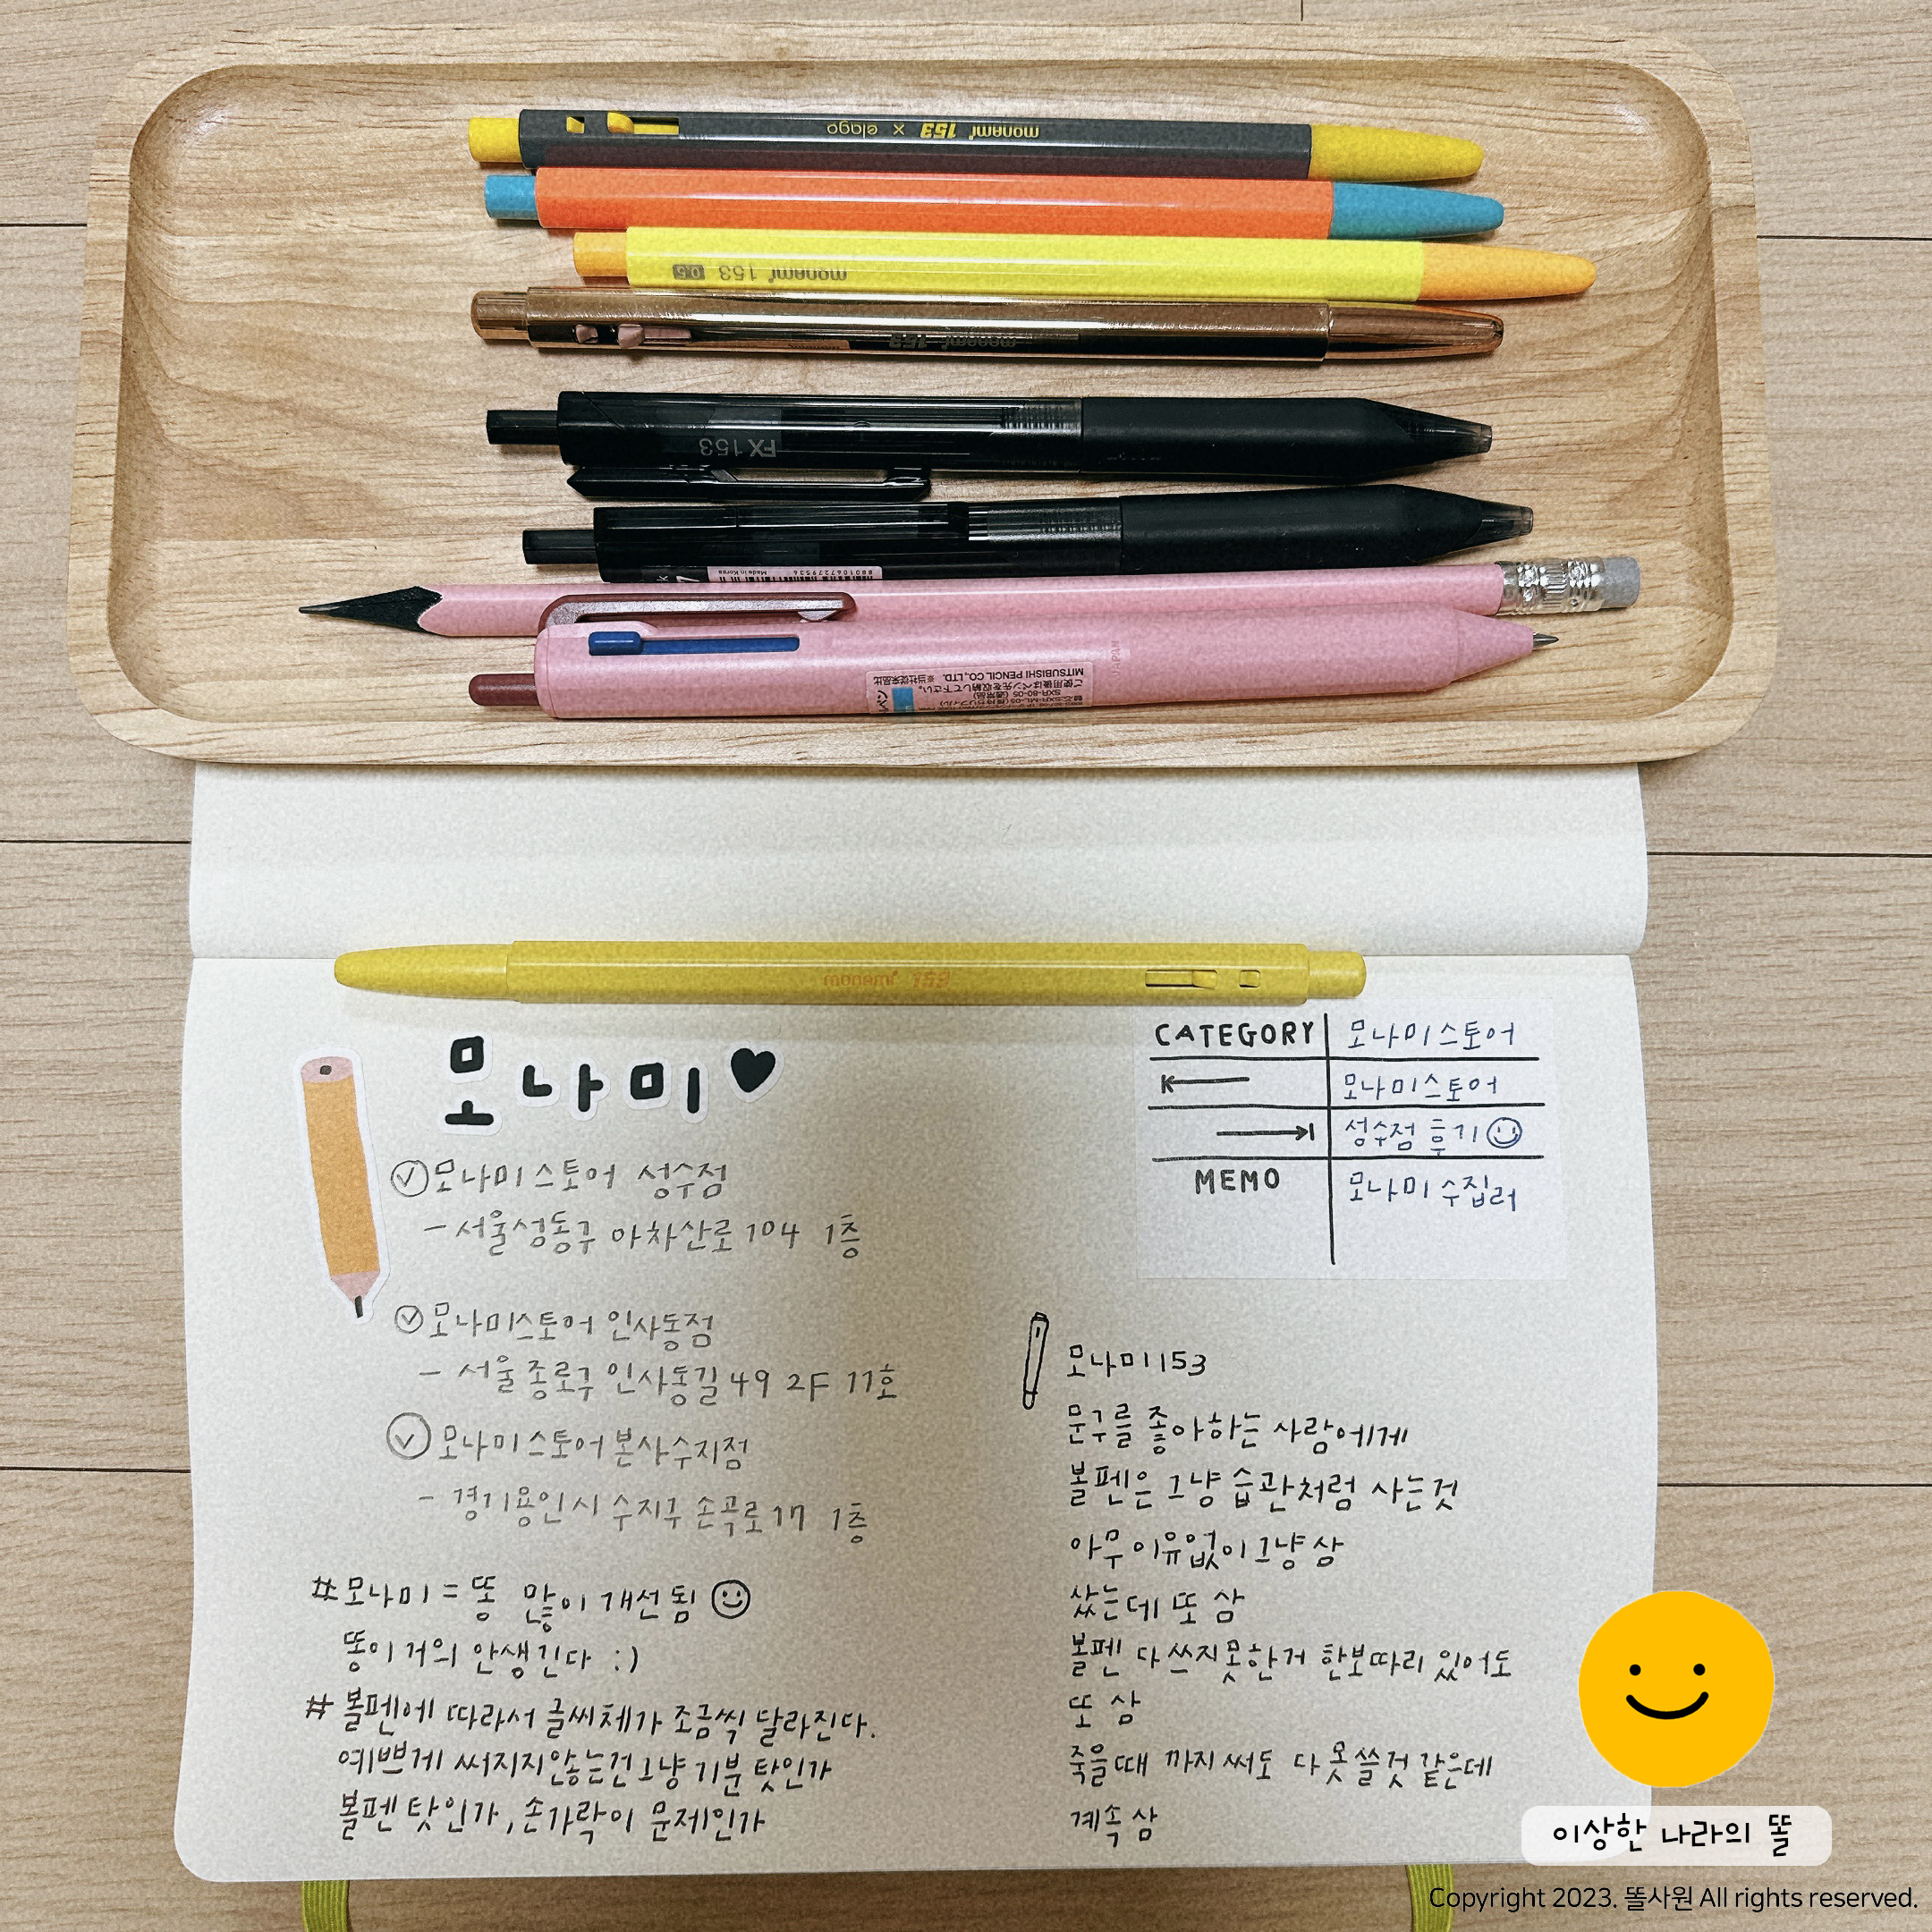 monami 153 x elago
monami 153 0.5
monami 153
FX 153
8801067279536
Made in Korea
JAPAN
MITSUBISHI PENCIL CO.,LTD. ※当社従来品比
ご使用後はペン先を収納して下さい。
SXR-80-05
monami 153
모나미♥
모나미스토어 성수점
- 서울성동구 아차산로 104 1층
모나미스토어 인사동점
- 서울종로구 인사동길 49 2F 11호
모나미스토어 본사수지점
- 경기용인시 수지구 손곡로 17 1층
# 모나미 = 똥 많이 개선됨
똥이 거의 안생긴다 :)
# 볼펜에 따라서 글씨체가 조금씩 달라진다.
예쁘게 써지지않는건 그냥 기분 탓인가
볼펜 탓인가, 손가락이 문제인가
CATEGORY 모나미스토어
모나미스토어
성수점 후기
MEMO 모나미 수집러
모나미153
문구를 좋아하는 사람에게
볼펜은 그냥 습관처럼 사는것
아무 이유없이 그냥 삼
샀는데 또 삼
볼펜 다 쓰지못한거 한보따리 있어도
또 삼
죽을때 까지 써도 다 못 쓸것 같은데
계속 삼
이상한 나라의 똘
Copyright 2023. 똘사원 All rights reserved.